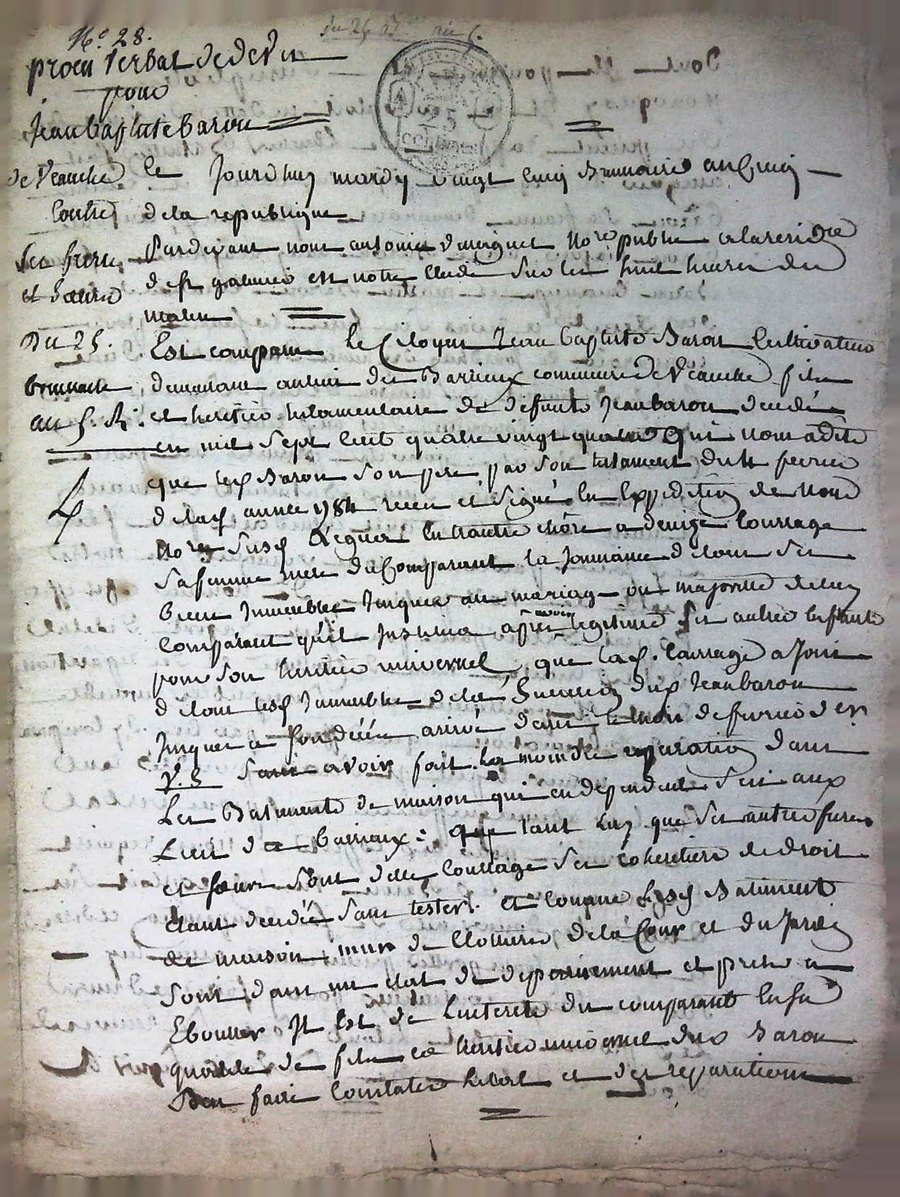 N.° 28.
du 25 B.re an 5.
procès verbal de devis
pour
Jean baptiste Baron
de Veauche
Contre
ses freres
et sœurs
Du 25.
brumaire
an 5. R.
25
CENTIMES
Ce Jourdhuy mardy vingt cinq Brumaire an Cinq
de la republique
Pardevant nous antoine No.re public a la residce
de st galmier est notre Etude sur les huit heures du
matin
Est comparu le Citoyen Jean baptiste Baron Cultivateur
demeurant au lieu des Barrieux commune de Veauche, fils
et heritier testamentaire de defunt Jean baron decedé
en mil sept cent quatre vingt quatre Qui nous a dit
que led. Baron son pere par son testament du 4 fevrier
de lad. année 1784 recu et signé En Expedition de Nous
No.re susd. Legua En toute chose a denize Courrage
sa femme mere du Comparant la Jouissance de tous ses
biens Immeubles Jusques au mariage ou majorité de luy
Comparant qu'il Institua après avoir legitimé ses autres Enfants
pour son heritier universel, que lad. Courrage a Joui
de tous lesd. Immeubles de la succession dud. Jean baron
Jusques a son décés arrivé dans le mois de fevrier de
V.S sans avoir fait la moindre reparation dans
Les Batiments de maison qui en dependent sis aux
Lieu des Barrieux: que tant luy que ses autres freres
et sœurs sont de lad. Courrage ses coheritiers de droit
étant decedée sans tester. et comme lesd. Batiments
de maison, murs de Cloture de la Cour et du Jardin
sont dans un etat de deperissement et prets a
Ebouler Il est de L'interet du comparant En sa
qualité de fils et heritier universel dud. Baron
d'en faire Constater L'etat et des reparations